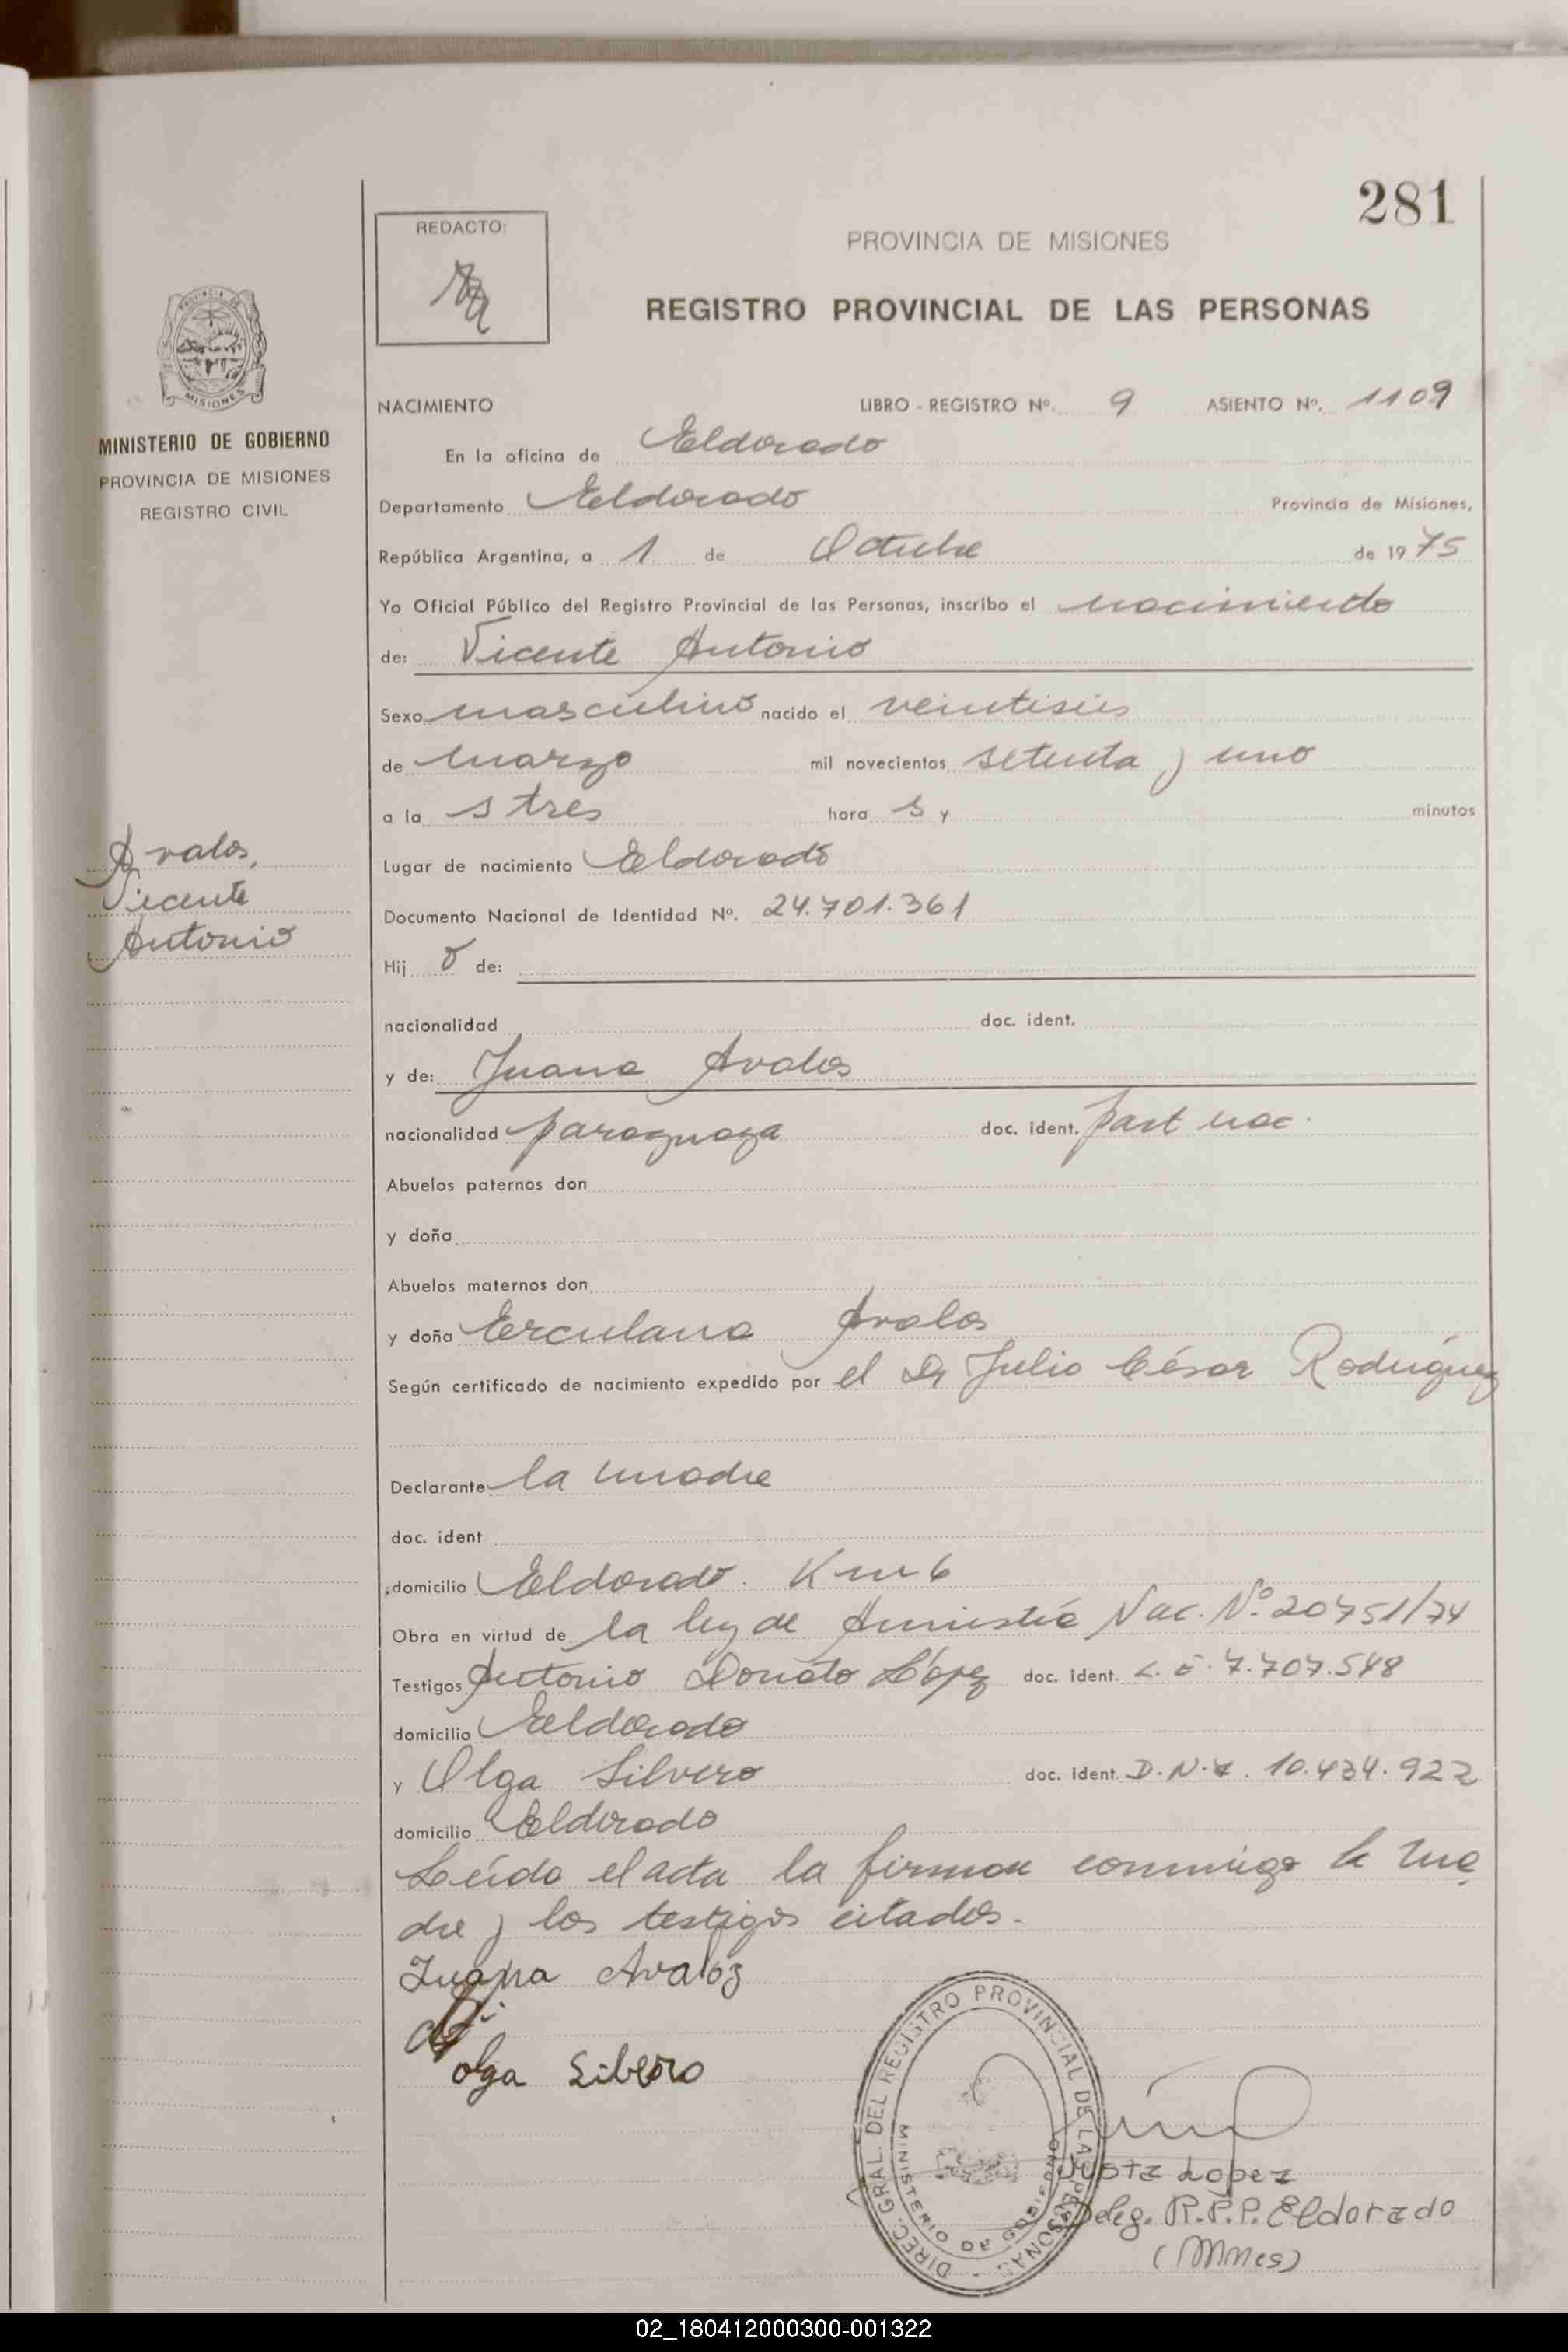 281
REDACTO:
PROVINCIA DE MISIONES
REGISTRO PROVINCIAL DE LAS PERSONAS
MISIONES
MINISTERIO DE GOBIERNO
PROVINCIA DE MISIONES
REGISTRO CIVIL
Avalos,
Vicente
Antonio
NACIMIENTO LIBRO - REGISTRO Nº. 9 ASIENTO Nº. 1109
En la oficina de Eldorado
Departamento Eldorado Provincia de Misiones,
República Argentina, a 1 de Octubre de 1975
Yo Oficial Público del Registro Provincial de las Personas, inscribo el nacimiento
de: Vicente Antonio
Sexo masculino nacido el veintiseis
de marzo mil novecientos setenta y uno
a la s tres hora s y minutos
Lugar de nacimiento Eldorado
Documento Nacional de Identidad Nº. 24.701.361
Hij o de:
nacionalidad doc. ident.
y de: Juana Avalos
nacionalidad paraguaya doc. ident. part nac.
Abuelos paternos don
y doña
Abuelos maternos don
y doña Erculana Avalos
Según certificado de nacimiento expedido por el Dr Julio César Rodríguez
Declarante la madre
doc. ident
domicilio Eldorado. Km 6
Obra en virtud de la ley de Amnistía Nac. Nº 20751/74
Testigos Antonio Donato López doc. ident. L.E. 7.707.548
domicilio Eldorado
y Olga Silvero doc. ident. D.N.I. 10.434.922
domicilio Eldorado
Leída el acta la firman conmigo la ma
dre y los testigos citados.
Juana Avaloz
olga Sibero
DIREC. GRAL. DEL REGISTRO PROVINCIAL DE LAS PERSONAS
MINISTERIO DE GOBIERNO
Justa Lopez
Deleg. R.P.P. Eldorado
(Mnes)
02_180412000300-001322